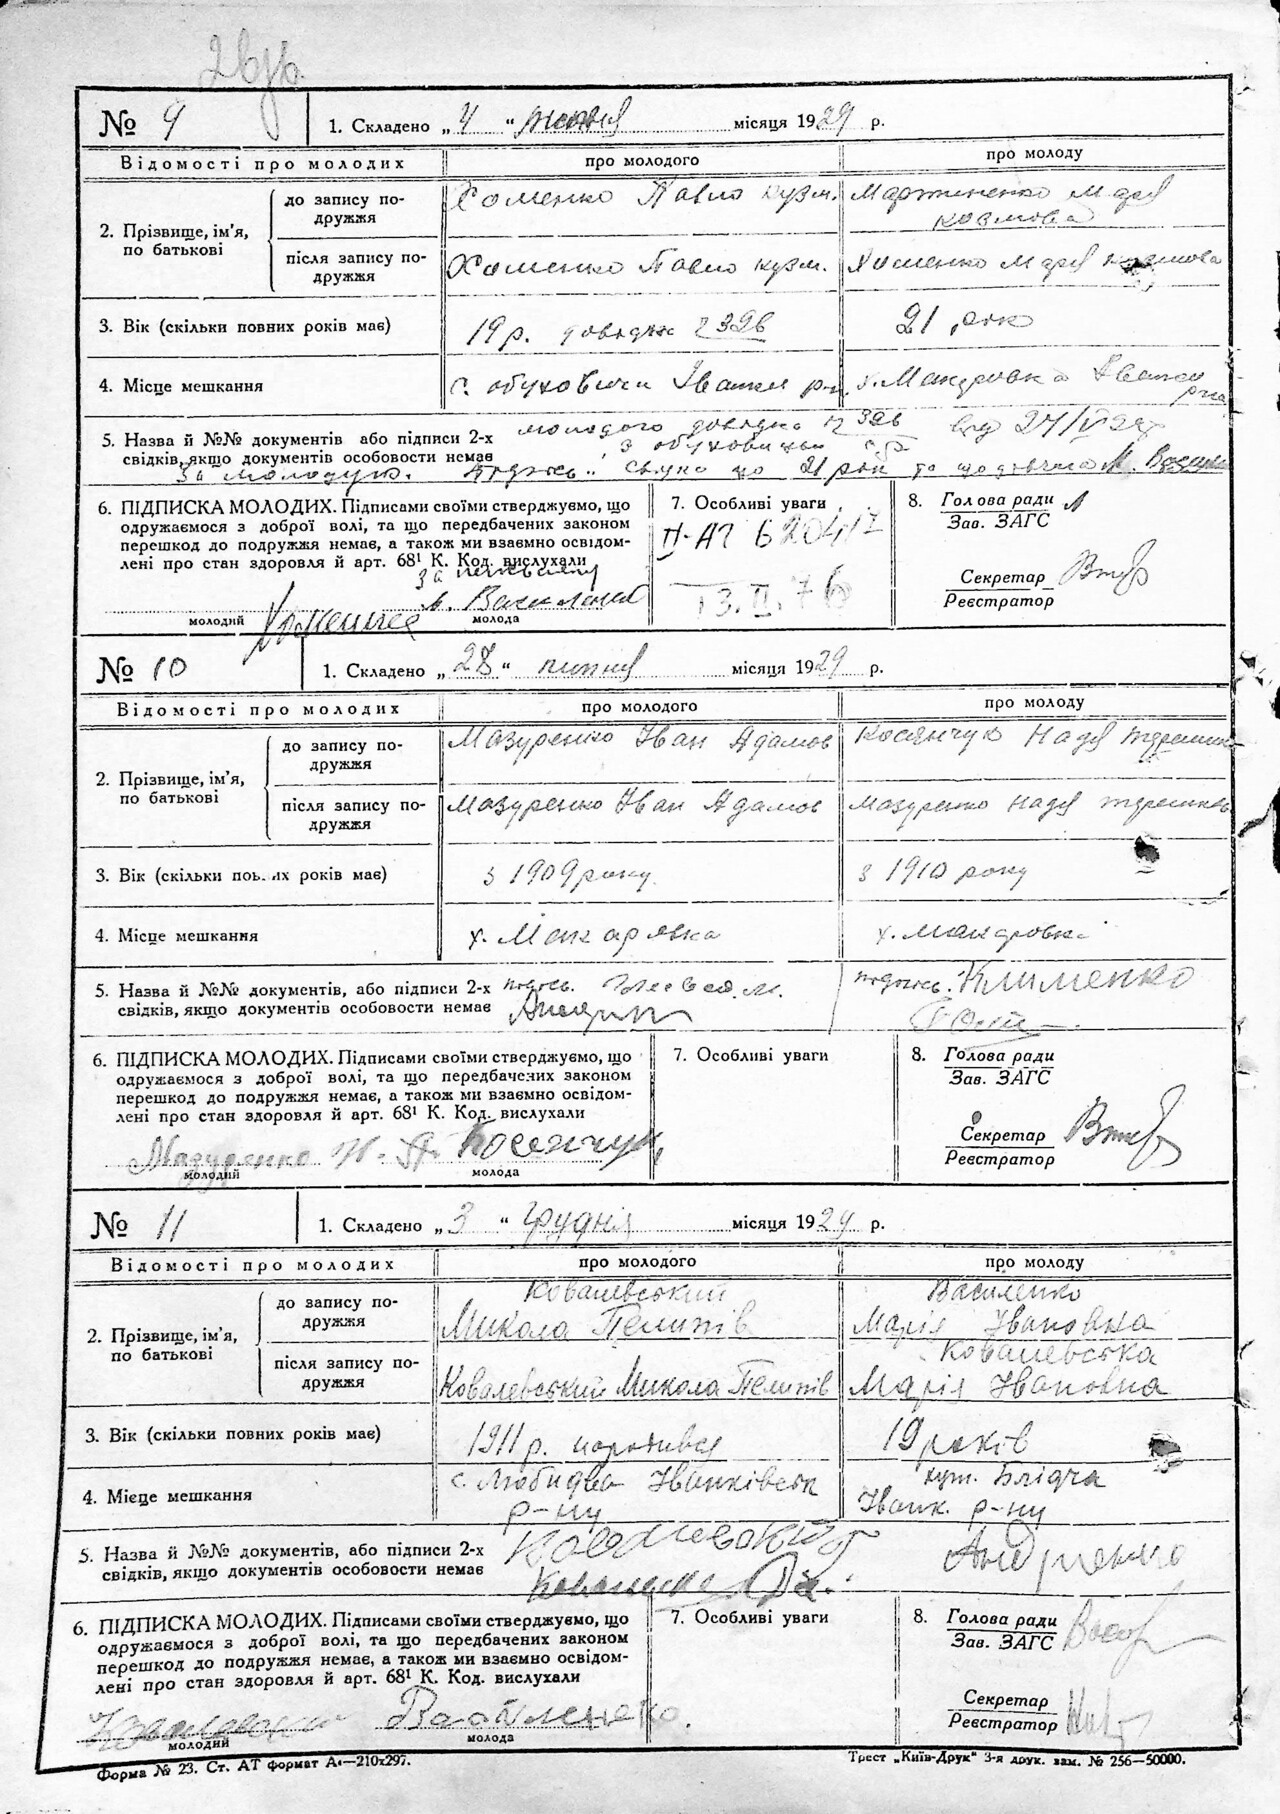 № 9
1. Складено „ 4 “ місяця 1929 р.
Відомості про молодих
про молодого
про молоду
2. Прізвище, ім'я, по батькові
до запису подружжя
Хоменко Павло кузм.
Мартиненко Марія
козмова
після запису подружжя
Хоменко Павло кузм.
Хоменко Марія козмова
3. Вік (скільки повних років має)
19 р. довідка № 326
21 рок
4. Місце мешкання
с. обуховичи Іванки р-н.
х. Макаровка Іванко
р-на
5. Назва й №№ документів або підписи 2-х
свідків, якщо документів особовости немає
молодого довідка № 326 від
з обуховичи
за молодую. подпись
6. ПІДПИСКА МОЛОДИХ. Підписами своїми стверджуємо, що
одружаємося з доброї волі, та що передбачених законом
перешкод до подружжя немає, а також ми взаємно освідом-
лені про стан здоровля й арт. 68¹ К. Код. вислухали
молодий
молода
7. Особливі уваги
II-АГ 620417
13.II.76
8. Голова ради
Зав. ЗАГС
Секретар
Реєстратор
№ 10
1. Складено „ 28 “ липня місяця 1929 р.
Відомості про молодих
про молодого
про молоду
2. Прізвище, ім'я, по батькові
до запису подружжя
Мазуренко Іван Адамов
Косянчук Надя
після запису подружжя
Мазуренко Іван Адамов
Мазуренко Надя
3. Вік (скільки повних років має)
з 1909 року
з 1910 року
4. Місце мешкання
х. Макаровка
х. Макаровка
5. Назва й №№ документів, або підписи 2-х
свідків, якщо документів особовости немає
подпись.
подпись. Клименко
6. ПІДПИСКА МОЛОДИХ. Підписами своїми стверджуємо, що
одружаємося з доброї волі, та що передбачених законом
перешкод до подружжя немає, а також ми взаємно освідом-
лені про стан здоровля й арт. 68¹ К. Код. вислухали
Мазуренко Косенчук
молодий
молода
7. Особливі уваги
8. Голова ради
Зав. ЗАГС
Секретар
Реєстратор
№ 11
1. Складено „ 3 “ грудня місяця 1929 р.
Відомості про молодих
про молодого
про молоду
2. Прізвище, ім'я, по батькові
до запису подружжя
Ковалевський
Микола Пелипів
Василенко
Марія Івановна
після запису подружжя
Ковалевський Микола Пелипів
Ковалевська
Марія Івановна
3. Вік (скільки повних років має)
1911 р. народився
19 років
4. Місце мешкання
Іванківськ
р-ну
хут. Блідча
Іванк. р-ну
5. Назва й №№ документів, або підписи 2-х
свідків, якщо документів особовости немає
Ковалевский
Андриенко
6. ПІДПИСКА МОЛОДИХ. Підписами своїми стверджуємо, що
одружаємося з доброї волі, та що передбачених законом
перешкод до подружжя немає, а також ми взаємно освідом-
лені про стан здоровля й арт. 68¹ К. Код. вислухали
молодий
молода
7. Особливі уваги
8. Голова ради
Зав. ЗАГС
Секретар
Реєстратор
Форма № 23. Ст. АТ формат А₄—210x297.
Трест „Київ-Друк“ 3-я друк. зам. № 256—50000.